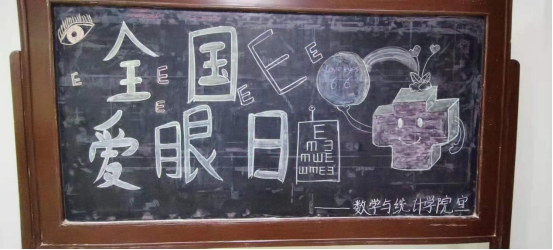 全国
爱眼日
E
E
E
E
E
E
6.6
E
m Ǝ
m W E
W m E Ǝ
——数学与统计学院宣